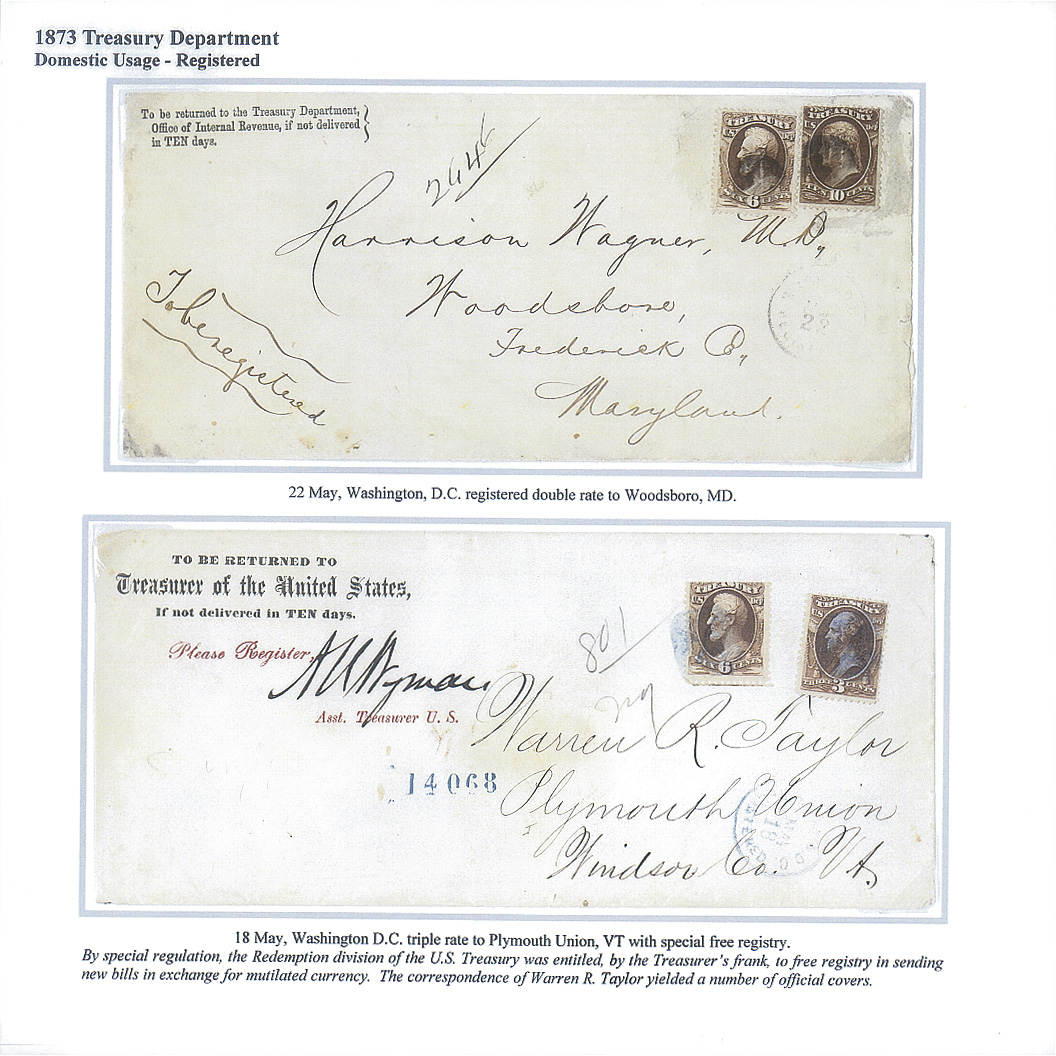 1873 Treasury Department
Domestic Usage - Registered
To be returned to the Treasury Department,
Office of Internal Revenue, if not delivered
in TEN days.
2646
TREASURY
U.S. DPT
SIX 6 CENTS
TREASURY
U.S. DPT
TEN 10 CENTS
Harrison Wagner, M.D.,
Woodsboro,
Frederick Co.,
Maryland.
To be registered
22 May, Washington, D.C. registered double rate to Woodsboro, MD.
TO BE RETURNED TO
Treasurer of the United States,
If not delivered in TEN days.
Please Register,
A U Wyman
Asst. Treasurer U. S.
801
TREASURY
U.S. DPT
SIX 6 CENTS
TREASURY
U.S. DPT
THREE 3 CENTS
14068
Warren R. Taylor
Plymouth Union
Windsor Co. Vt.
MAY
18
18 May, Washington D.C. triple rate to Plymouth Union, VT with special free registry.
By special regulation, the Redemption division of the U.S. Treasury was entitled, by the Treasurer's frank, to free registry in sending
new bills in exchange for mutilated currency. The correspondence of Warren R. Taylor yielded a number of official covers.